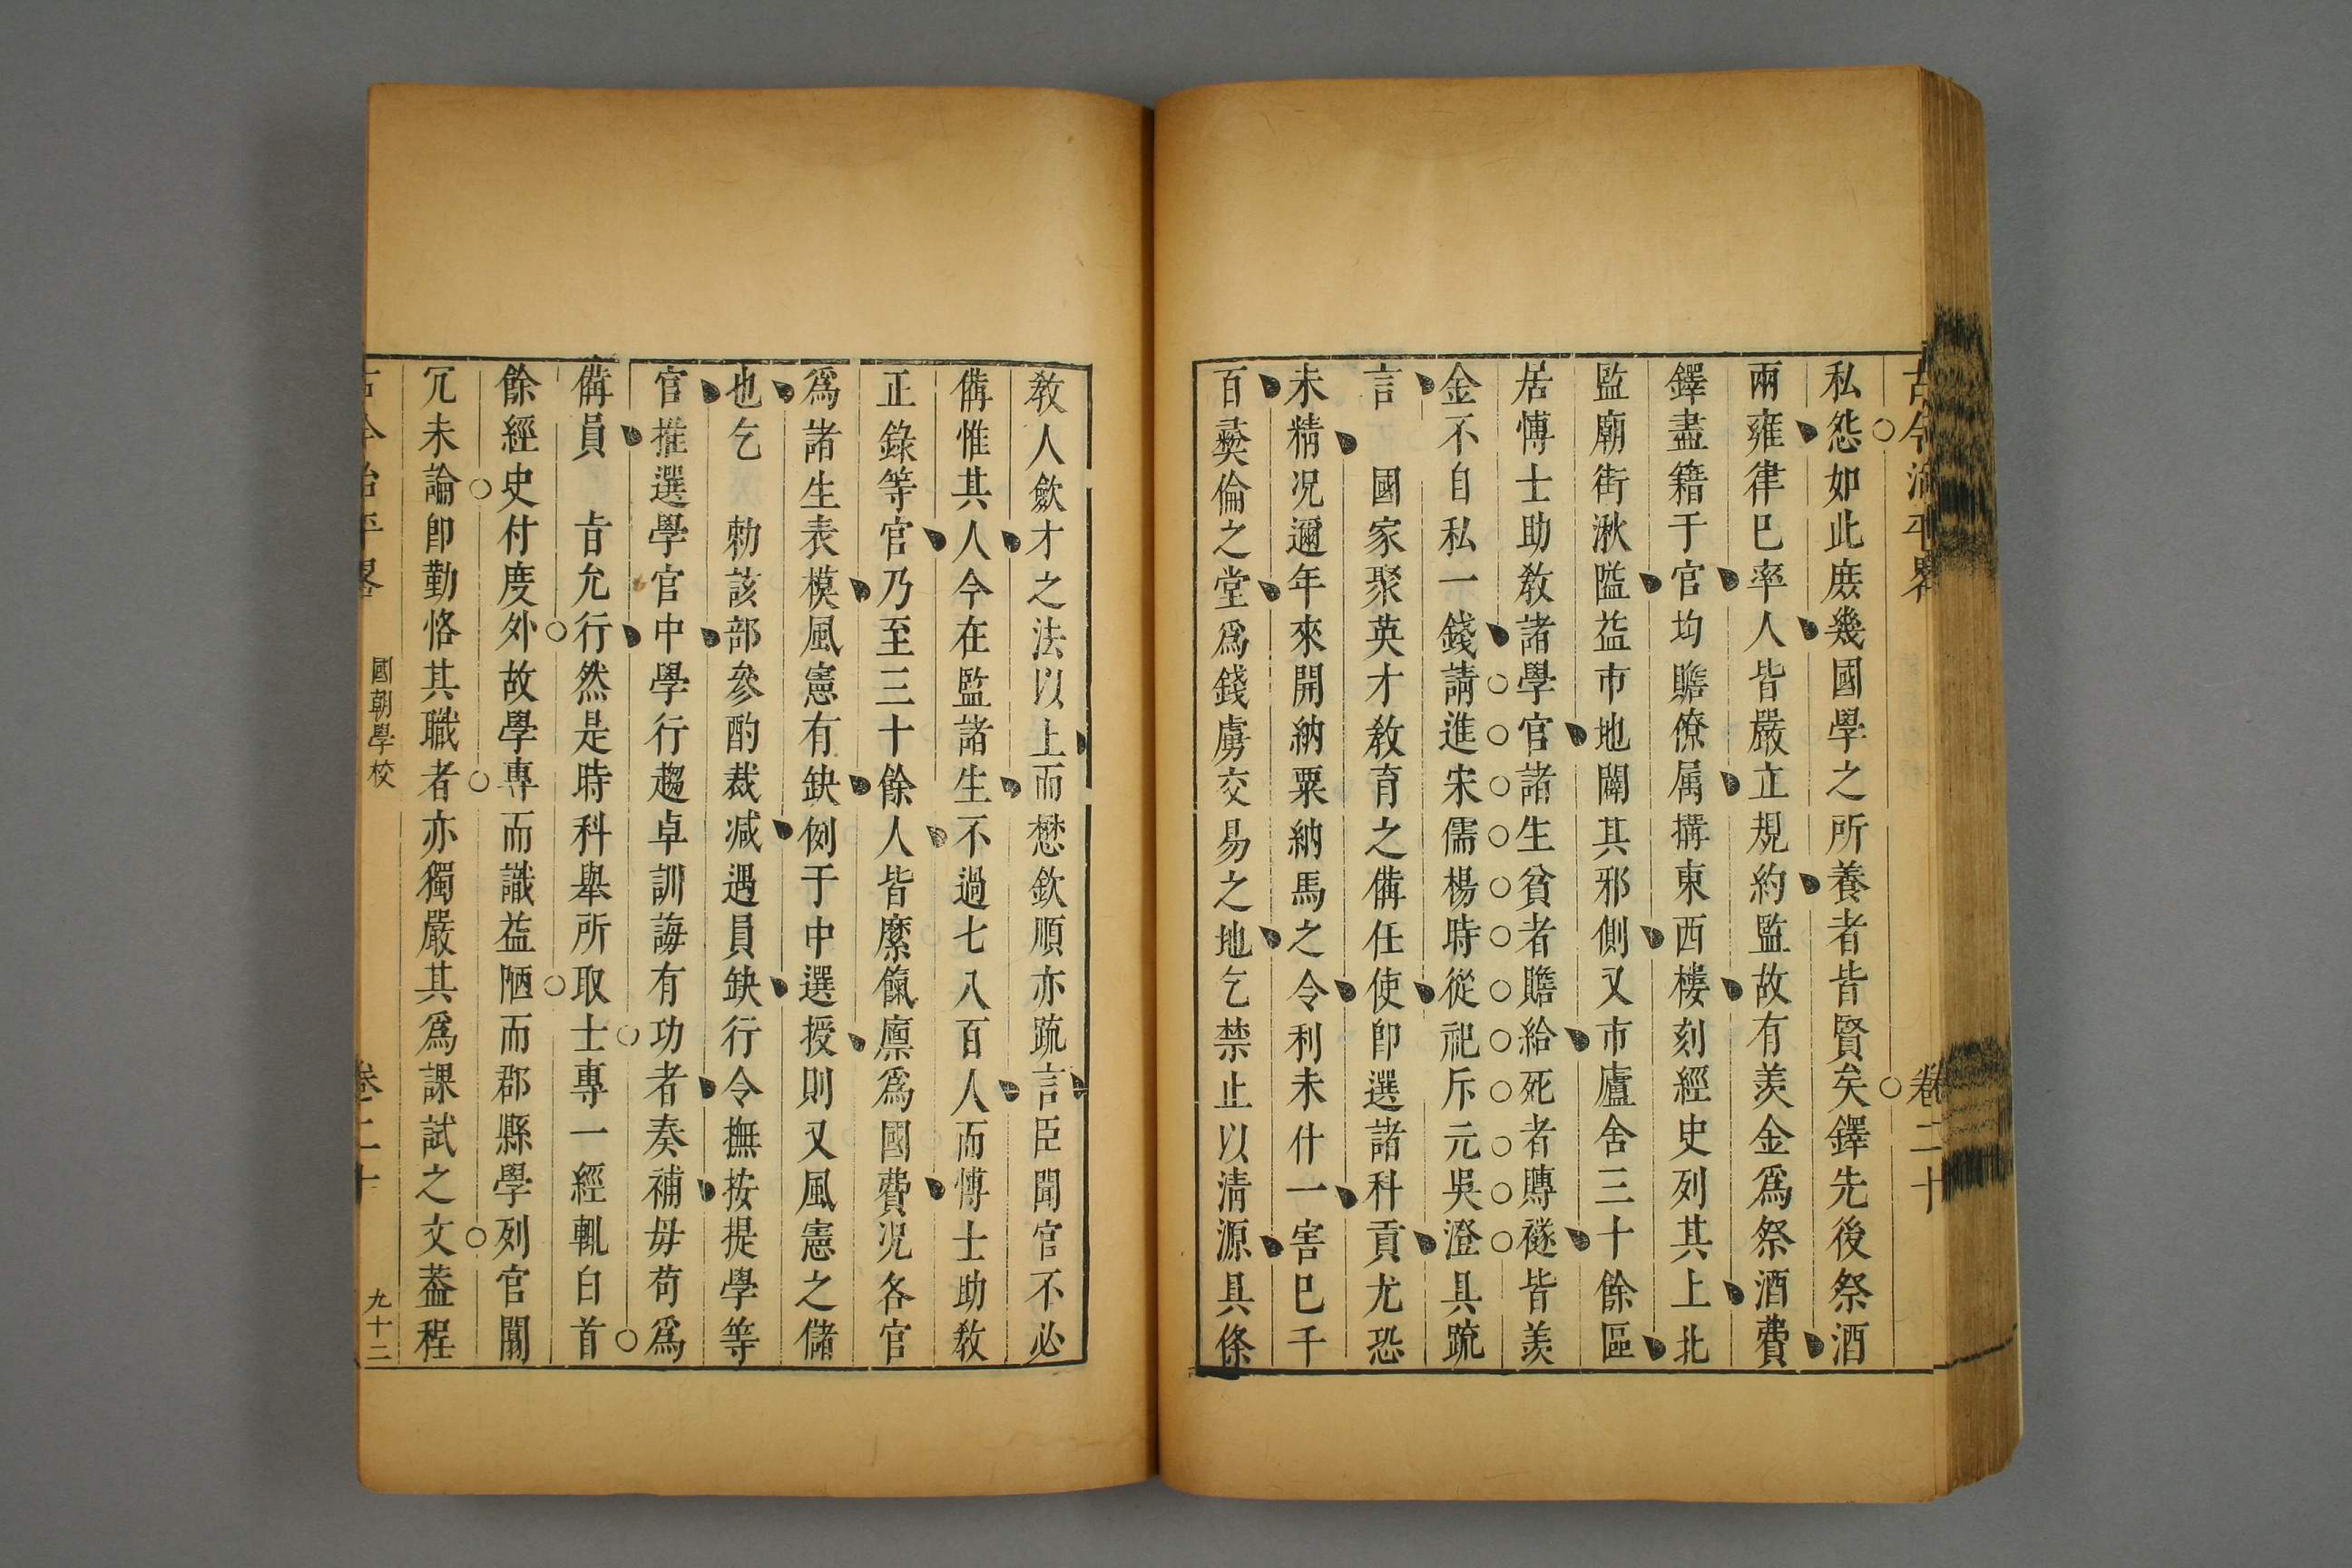 古今治平畧 卷二十
私怨如此庻幾國學之所養者皆賢矣鐸先後祭酒
兩雍律巳率人皆嚴立規約監故有羡金爲祭酒費
鐸盡籍于官均贍僚属搆東西樓刻經史列其上北
監廟街湫隘葢市地闢其邪側又市廬舍三十餘區
居愽士助敎諸學官諸生貧者贍給死者賻襚皆羡
金不自私一錢請進宋儒楊時從祀斥元吳澄具疏
言 國家聚英才敎育之備任使卽選諸科貢尤恐
未精况邇年來開納粟納馬之令利未什一害巳千
百彛倫之堂爲錢虜交易之地乞禁止以清源具條
敎人斂才之法以上而懋欽順亦疏言臣聞官不必
備惟其人今在監諸生不過七八百人而愽士助敎
正錄等官乃至三十餘人皆縻餼廪爲國費况各官
爲諸生表模風憲有缺例于中選授則又風憲之儲
也乞 勑該部參酌裁减遇員缺行令撫按提學等
官推選學官中學行趨卓訓誨有功者奏補毋苟爲
備員 旨允行然是時科舉所取士專一經軌白首
餘經史付度外故學專而識益陋而郡縣學列官闒
冗未論卽勤恪其職者亦獨嚴其爲課試之文葢程
古今治平畧 國朝學校 卷二十 九十二